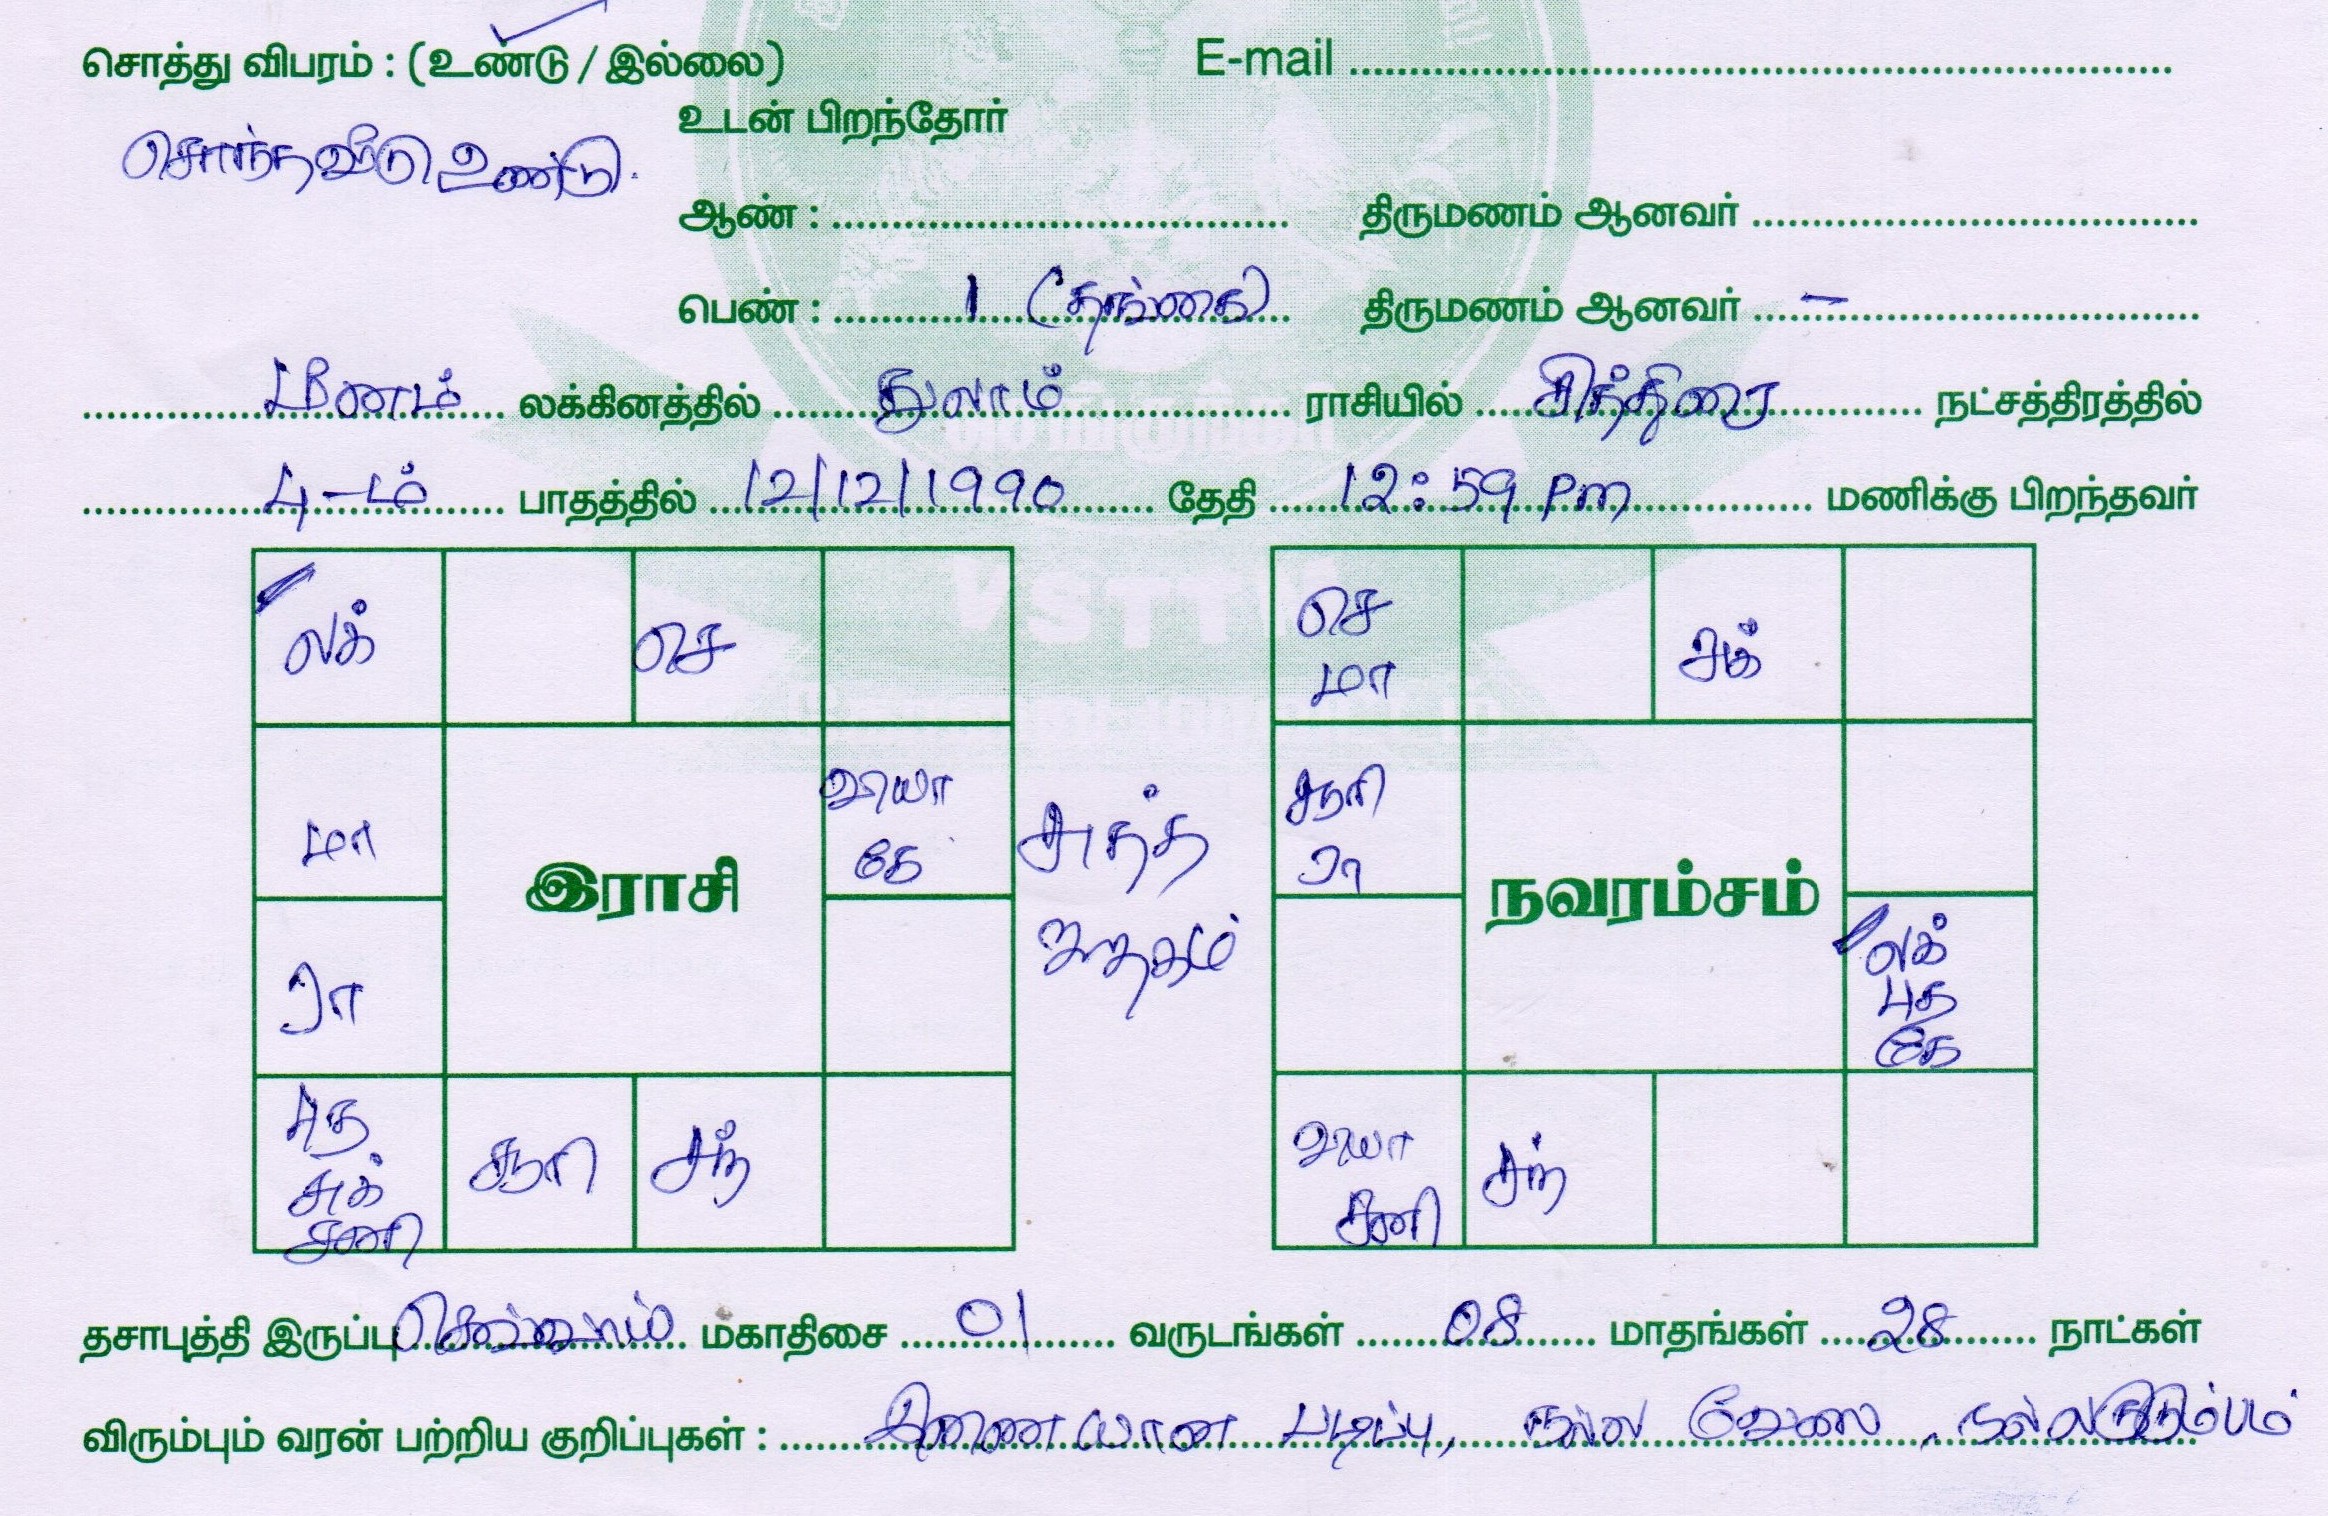 சொத்து விபரம் : (உண்டு / இல்லை) E-mail
உடன் பிறந்தோர்
சொந்த வீடு உண்டு.
ஆண் : திருமணம் ஆனவர்
பெண் : 1 (தங்கை) திருமணம் ஆனவர் –
மீனம் லக்கினத்தில் துலாம் ராசியில் சித்திரை நட்சத்திரத்தில்
4-ம் பாதத்தில் 12/12/1990 தேதி 12:59 pm மணிக்கு பிறந்தவர்
லக் செ
மா வியா கே
இராசி
ரா
புத சுக் சனி சூரி சந்
சுத்த
ஜாதகம்
செ மா சுக்
சூரி ரா
நவரம்சம்
லக் புத கே
வியா சனி சந்
VSTT
தசாபுத்தி இருப்பு செவ்வாய் மகாதிசை 01 வருடங்கள் 08 மாதங்கள் 28 நாட்கள்
விரும்பும் வரன் பற்றிய குறிப்புகள் : இணையான படிப்பு, நல்ல வேலை, நல்லகுடும்பம்